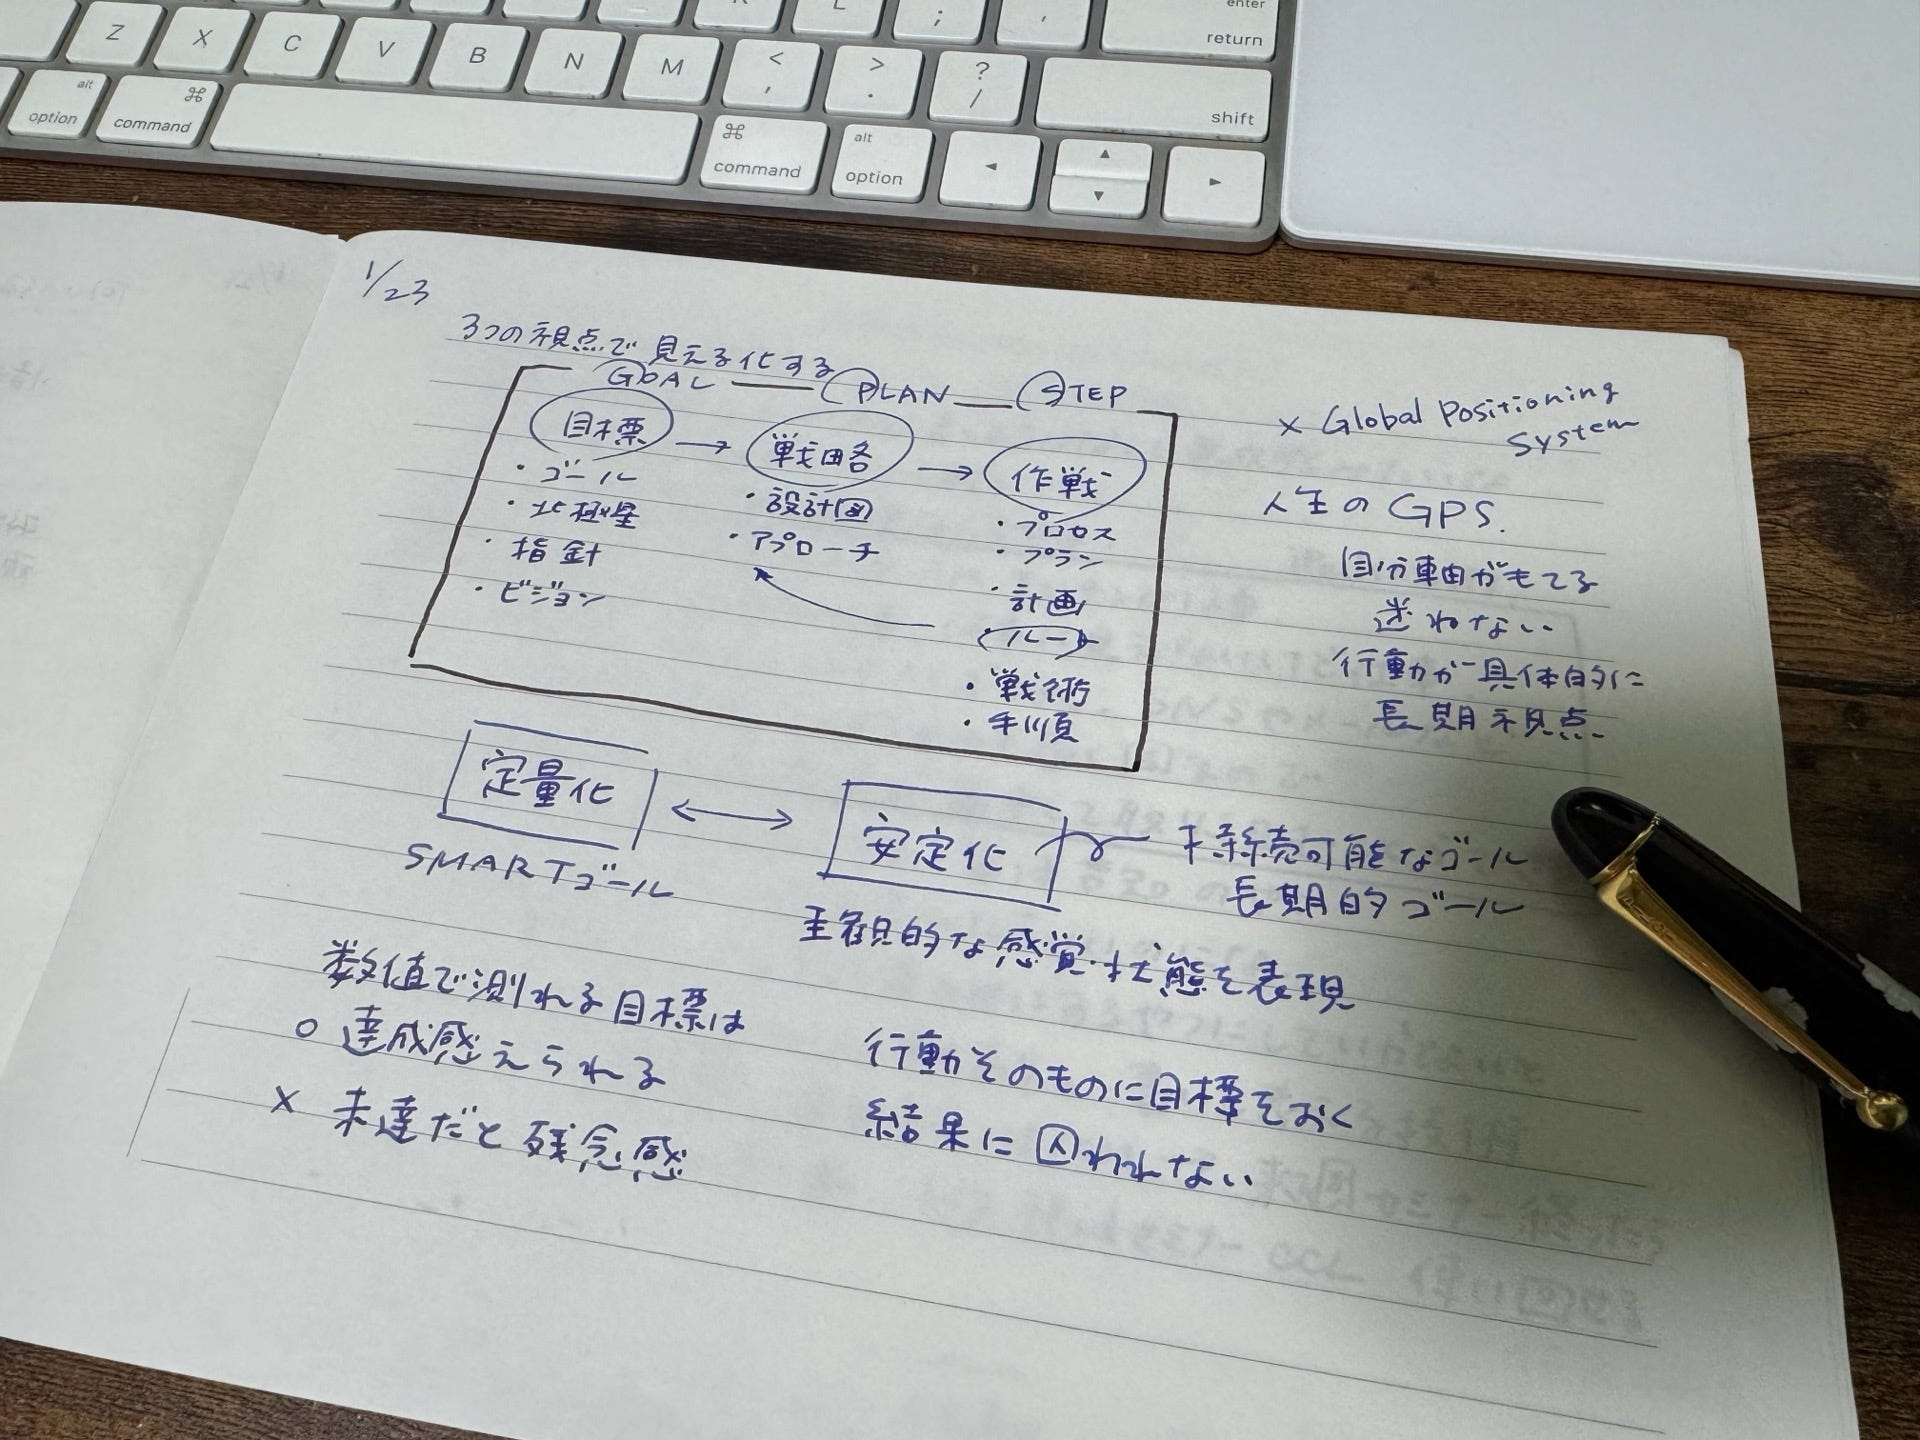 Z X C V B N M < , > . ? / enter return
alt option ⌘ command ⌘ command alt option shift
◄ ▲ ▼ ►
1/23
3つの視点で見える化する
GOAL — PLAN — STEP
目標 → 戦略 → 作戦
・ゴール
・北極星
・指針
・ビジョン
・設計図
・アプローチ
・プロセス
・プラン
・計画
・ルート
・戦術
・手順
× Global Positioning
System
人生のGPS.
自分軸がもてる
迷わない
行動が具体的に
長期視点
定量化 ↔ 安定化
SMARTゴール
持続可能なゴール
長期的ゴール
主観的な感覚・状態を表現
数値で測れる目標は
○ 達成感えられる
× 未達だと残念感
行動そのものに目標をおく
結果に囚われない